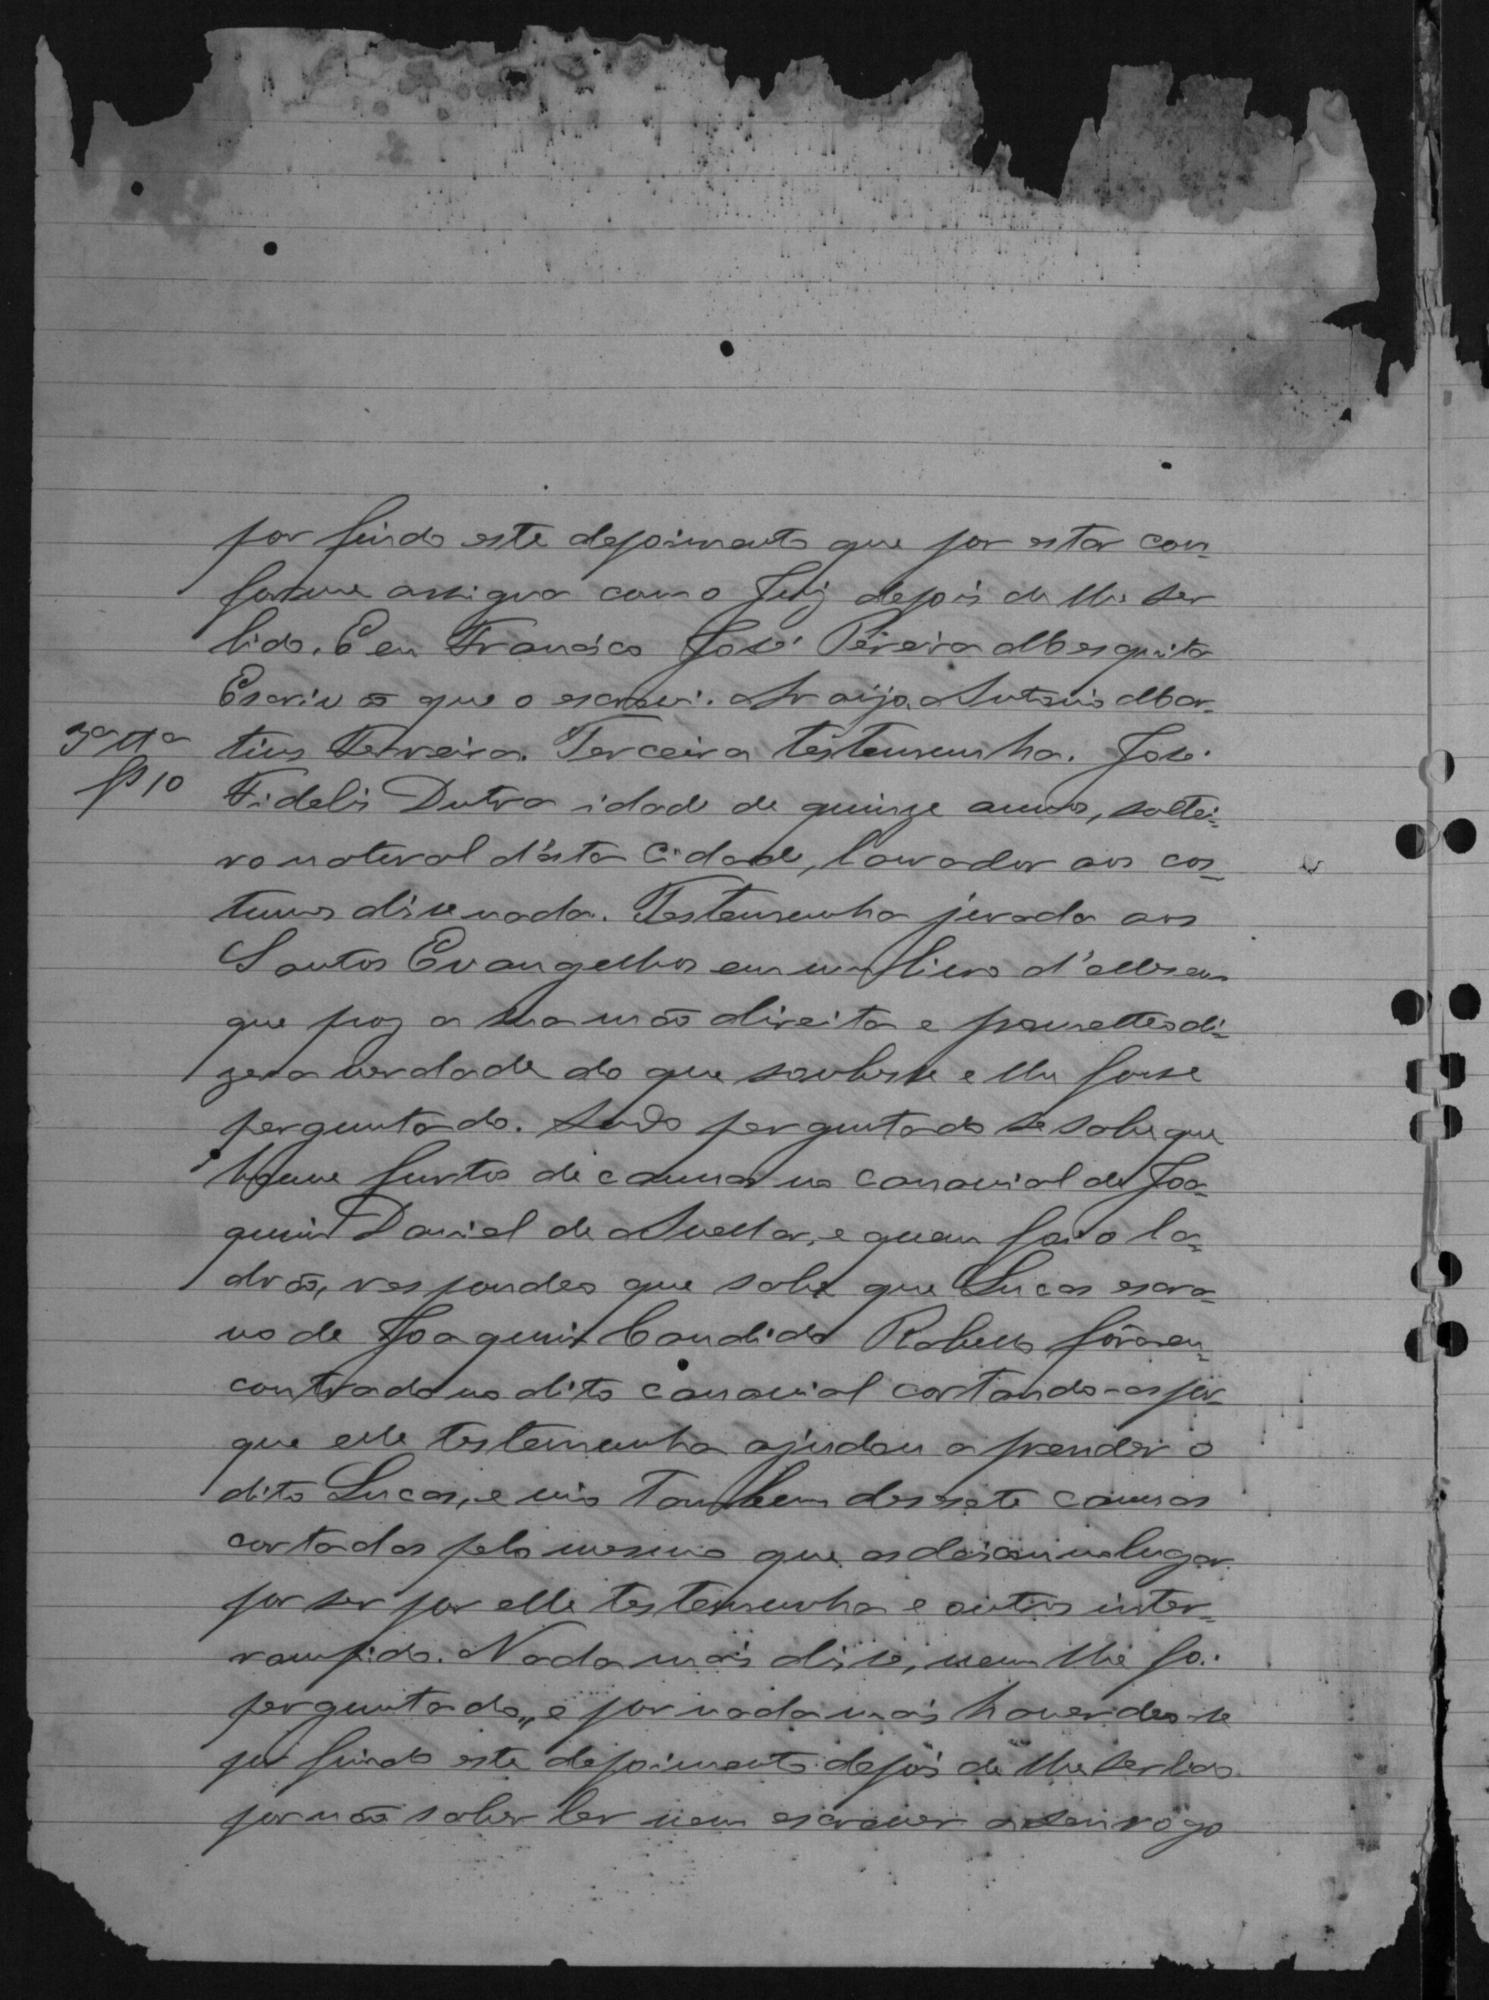 por findo este depoimento que por estar con-
forme assigna com o Juiz depois de lhe ser
lido. E eu Francisco José Pereira Mesquita
Escrivão que o escrevi. Araujo. Antonio Mar-
3ª ttª
tins Ferreira. Terceira testemunha. José
fs 10
Fidelis Dutra idade de quinze annos, soltei-
ro natural d'ésta Cidade, lavrador aos cos-
tumes disse nada. Testemunha jurada aos
Santos Evangelhos em um livro d'elles em
que poz a sua mão direita e prometteo di-
zer a verdade do que soubesse e lhe fosse
perguntado. Sendo perguntado se sabe que
houve furtos de cannas no canavial de Joa-
quim Daniel de Avellar, e quem foi o la-
drão, respondeo que sabe que Lucas escra-
vo de Joaquim Candido Rabello fôra en-
contrado no dito canavial cortando-as por-
que elle testemunha ajudou a prender o
dito Lucas, e vio tambem dessete cannas
cortadas pelo mesmo que as deixou no lugar
por ser por elle testemunha e outros inter-
rompido. Nada mais disse, nem lhe foi
perguntado, e por nada mais haver deo-se
por findo este depoimento depois de lhe ser lido
por não saber ler nem escrever a seu rogo